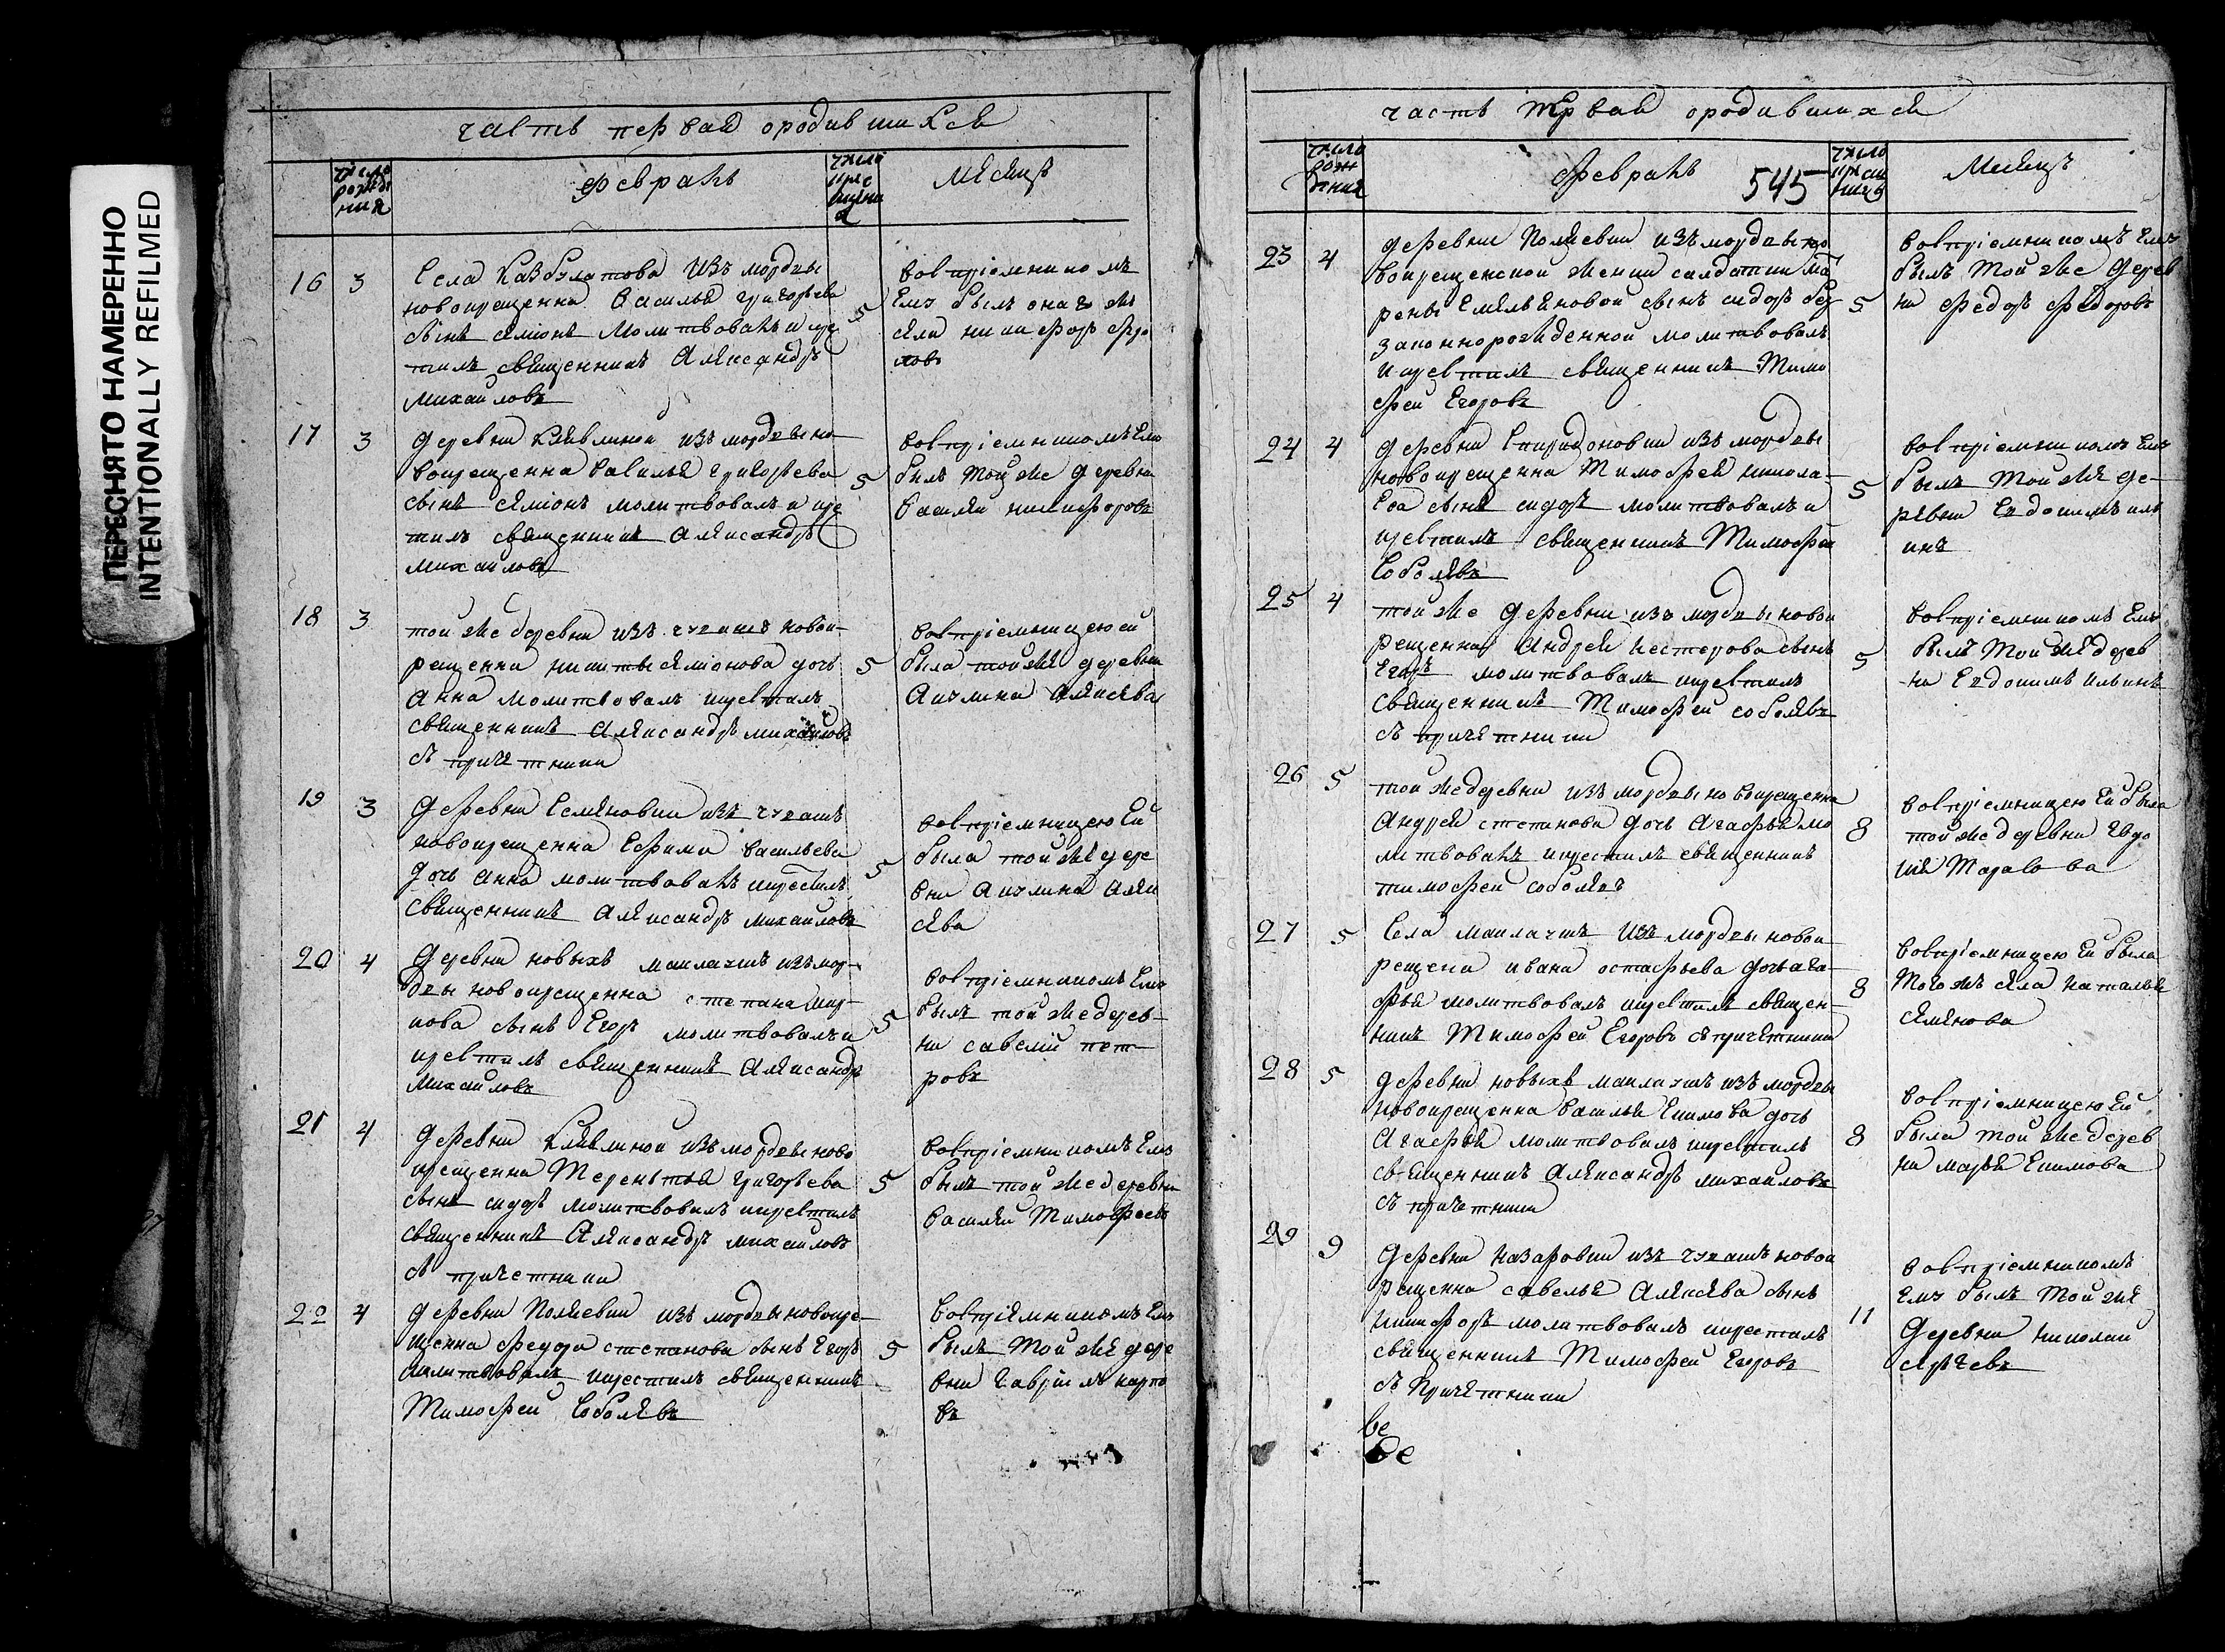 ПЕРЕСНЯТО НАМЕРЕННО
INTENTIONALLY REFILMED
часть первая ородившихся
число рождения
февраль
число крещения
Месяцъ
16 3
Села Казбулатова Изъ мордвы
новокрещенна Василья григорьева
сынъ семіонъ Молитвовалъ и кре
тилъ священникъ Александръ
Михайловъ
5
Воспріемникомъ
Ему былъ онаго жъ
села никифоръ
17 3
деревни Клявлиной изъ мордвы но
вокрещенна Василья григорьева
сынъ семіонъ молитвовалъ и кре
тилъ священникъ Александръ
михайловъ
5
воспріемникомъ Ему
былъ той же деревни
Василей никифоровъ
18 3
той же деревни изъ чувашъ новок
рещенна никиты семіонова дочь
Анна молитвовалъ икрестилъ
священникъ Александръ михайловъ
съ причетники
5
воспріемницею ей
была той же деревни
Акулина Алексева
19 3
деревни Семеновки изъ чувашъ
новокрещенна Ефрима васильева
дочь анна молитвовалъ икрестилъ
священникъ Александръ михайловъ
5
воспріемницею Ей
была той же дере
вни Акулина Алек
сева
20 4
деревни новыхъ маклаушъ изъ мор
двы новокрещенна степана
сынъ Егоръ молитвовалъ и
крестилъ священникъ Александръ
Михайловъ
5
воспріемникомъ Ему
былъ той же дерев
ни савелій пет
ровъ
21 4
деревни Клявлиной изъ мордвы ново
крещенна Терентья григорьева
сынъ сидоръ молитвовалъ икрестилъ
священникъ Александръ михайловъ
съ причетники
5
воспріемникомъ Ему
былъ той же деревни
василей Тимофеевъ
22 4
деревни Поляевки изъ мордвы новокре
щенна федора степанова сынъ Егоръ
молитвовалъ икрестилъ священникъ
Тимофей Соболевъ
5
Воспріемникомъ Ему
былъ Той же дере
вни гаврилъ карпо
въ
часть первая ородившихся
число рождения
февраль
545
число крещения
Месяцъ
23 4
деревни Поляевки изъ мордвы но
вокрещенской женки салдатки Мат
рены Емельяновой сынъ сидоръ без
законнорожденной молитвовалъ
икрестилъ священникъ Тимо
фей Егоровъ
5
Воспріемникомъ Ему
былъ Той же дерев
ни федоръ федоровъ
24 4
деревни Спиридоновки изъ мордвы
новокрещенна Тимофея никола
ева сынъ сидоръ молитвовалъ и
крестилъ священникъ Тимофей
Соболевъ
5
Воспріемникомъ Ему
былъ Той же де
ревни Евдокимъ иль
инъ
25 4
той же деревни изъ мордвы новок
рещенна Андрея нестерова сынъ
Егоръ молитвовалъ икрестилъ
священникъ Тимофей соболевъ
съ причетники
5
Воспріемникомъ Ему
былъ Той же дерев
ни Евдокимъ ильинъ
26 5
той же деревни изъ мордвы новокрещенна
Андрея степанова дочь Агафья мо
литвовалъ икрестилъ священникъ
тимофей соболевъ
8
Воспріемницею Ей была
той же деревни Евдо
кия Тарасова
27 5
Села маклаушъ Изъ мордвы новок
рещена ивана остафьева дочь ага
фья молитвовалъ икрестилъ священ
никъ Тимофей Егоровъ съ причетники
8
Воспріемницею Ей была
Того жъ села наталья
семенова
28 5
деревни новыхъ маклаушъ изъ мордвы
новокрещенна василья Екимова дочь
Агафья молитвовалъ икрестилъ
священникъ Александръ михайловъ
съ причетники
8
Воспріемницею Ей
была той же дерев
ни марья Екимова
29 9
деревни назаровки изъ чувашъ новок
рещенна савелья Алексева сынъ
никифоръ молитвовалъ икрестилъ
священникъ Тимофей Егоровъ
съ Причетники
11
Воспріемникомъ
Ему былъ Той же
деревни николай
сергеевъ
ве
ве